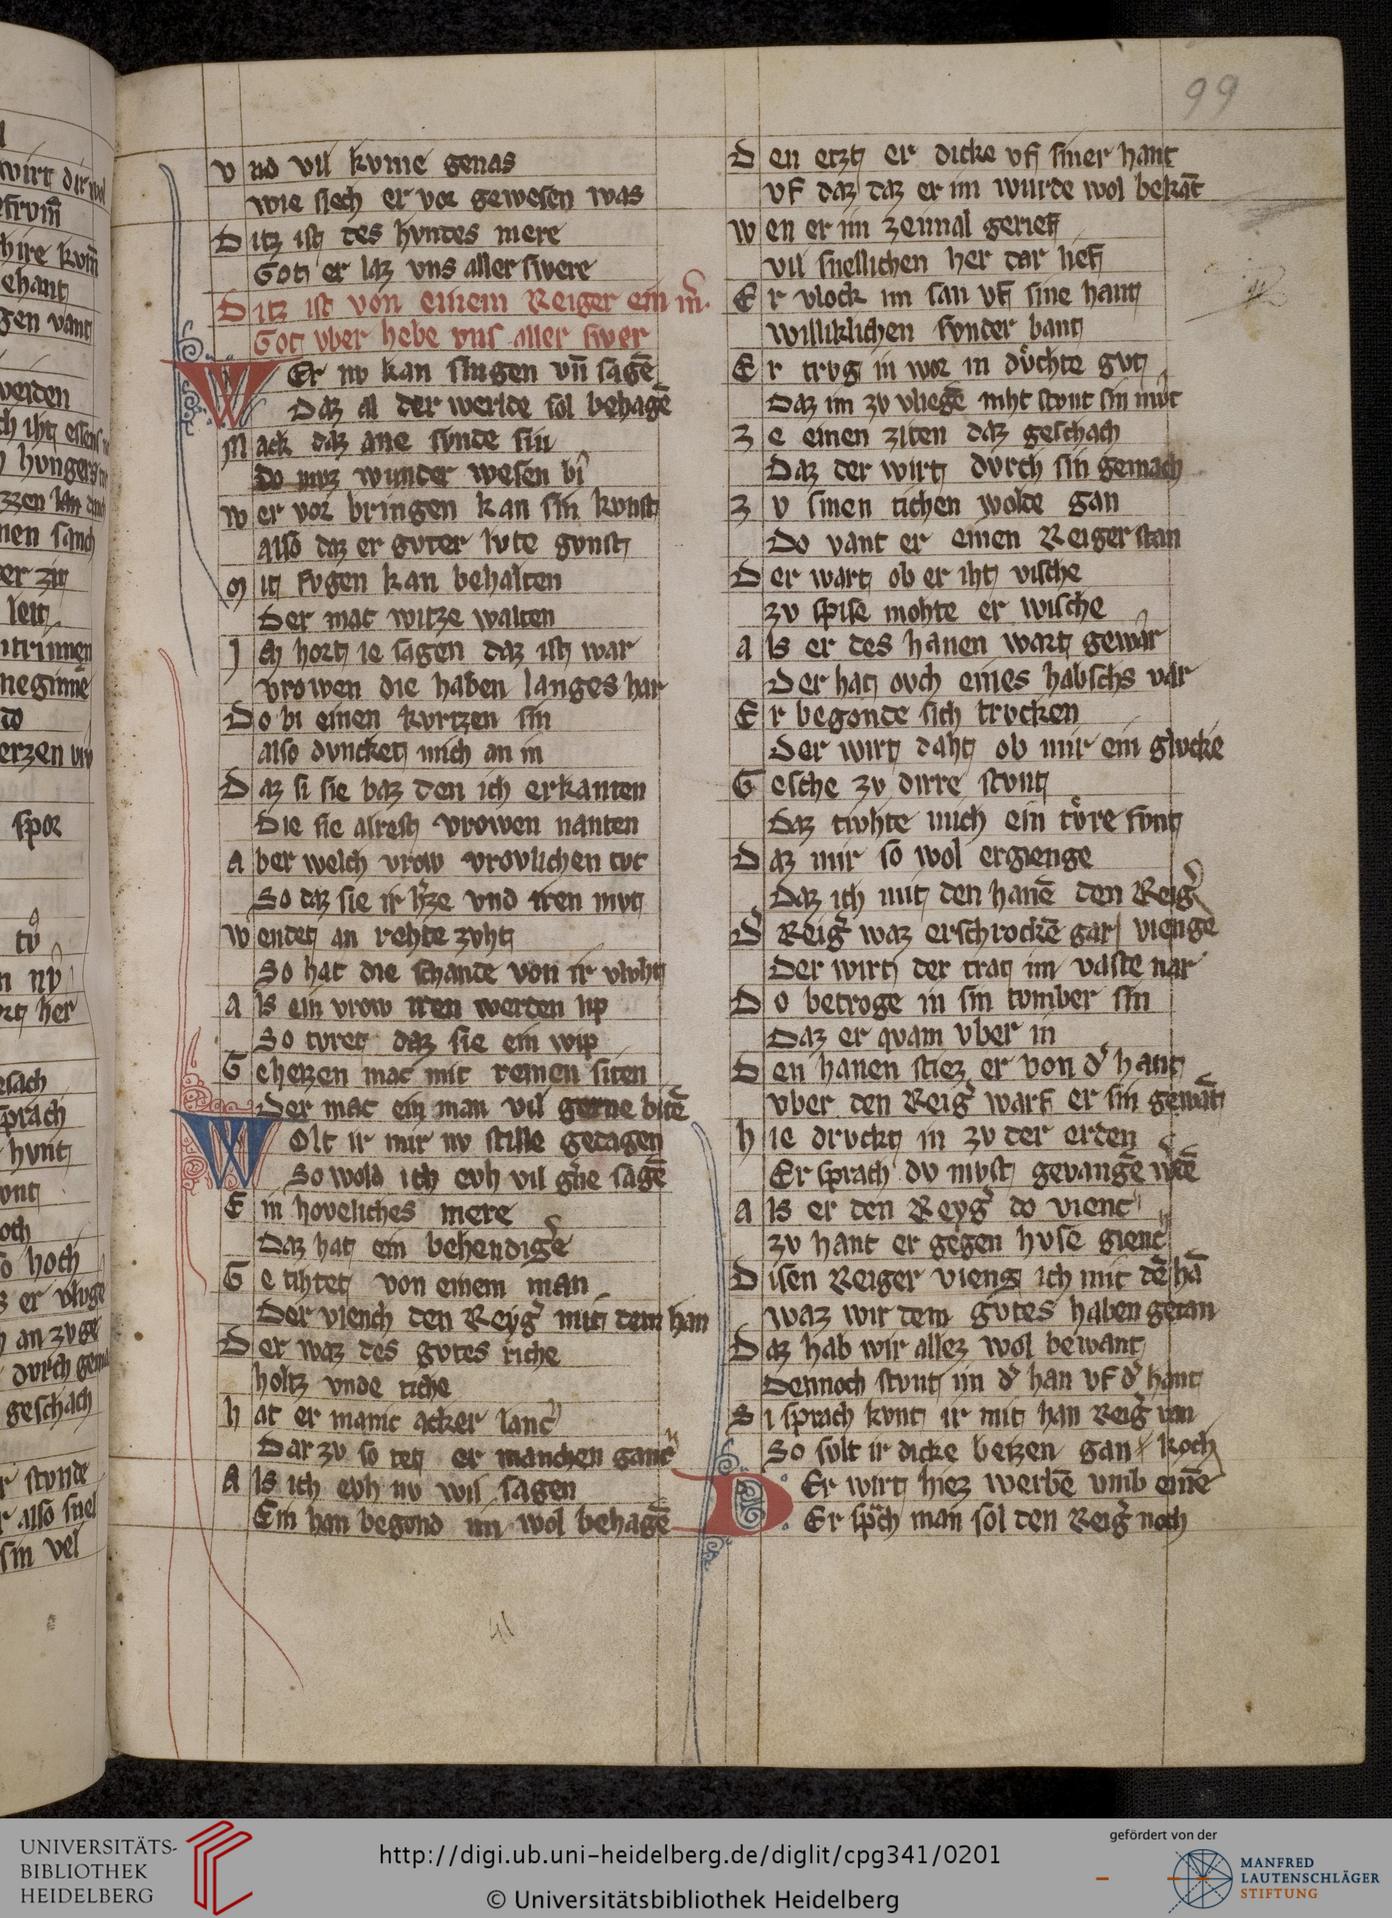 99
Vnd vil kvme genas
wie siech er vor gewesen was
Ditz ist des hvndes mere
Got er laz vns aller swere
Ditz ist von einem Reiger ein m̄.
Got vber hebe vns aller swer
WEr nv kan singen vn̄ sagē
Daz al der werlde sol behagē
Mack daz ane svnde sin
Do mvz wunder wesen bi
Wer vor bringen kan sin kvnst
also daz er gvter lvte gvnst
Mit fvgen kan behalten
Der mac witze walten
Ich hort ie sagen daz ist war
vrowen die haben langes har
Do bi einen kvrtzen sin
also dvncket mich an in
Daz si sie baz den ich erkanten
Die sie alrest vrowen nanten
Aber welch vrow vrovlichen tvt
So daz sie ir h̾ze vnd iren mvt
Wendet an rehte zvht
So hat die schande von ir vlvht
Als ein vrow iren werden lip
So tvret daz sie ein wip
Geheizen mac mit reinen siten
Der mac ein man vil gerne bitē
WOlt ir mir nv stille gedagen
So wold ich evh vil g̾ne sagē
Ein hoveliches mere
Daz hat ein behendig̾e
Getihtet von einem man
Der viench den Reyg̾ mit dem han
Der waz des gvtes riche
holtz vnde tiche
Hat er manic acker lanc
Dar zv so tet er manchen ganc
Als ich evh nv wil sagen
Ein han begond im wol behagē
Den etzt er dicke vf siner hant
vf daz daz er im wurde wol bekāt
Wen er im zeimal gerief
vil snellichen her dar lief
Er vlock im san vf sine hant
williklichen svnder bant
Er trvg in wor in dvͦchte gvt
Daz im zv vliegē niht stvnt sin mvͦt
Ze einen ziten daz geschach
Daz der wirt dvrch sin gemach
Zv sinen tichen wolde gan
Do vant er einen Reiger stan
Der wart ob er iht vische
zv spise mohte er wische
Als er des hanen wart gewar
Der hat ovch eines habichs var
Er begonde sich trvcken
Der wirt daht ob mir ein glvcke
Gesche zv dirre stvnt
Daz tivhte mich ein tvͦre fvnt
Daz mir so wol ergienge
Daz ich mit den hanē den Reig̾
D̾ Reig̾ waz erschrockē gar vienge
Der wirt der trat im vaste nar
Do betroge in sin tvmber sin
Daz er quam vber in
Den hanen stiez er von d̾ hant
vber den Reig̾ warf er sin gewāt
Hie drvckt in zv der erden
Er sprach dv mvst gevangē w̾dē
Als er den Reyg̾ do vienc
zv hant er gegen hvse gienc
Disen Reiger vieng ich mit dē hā
waz wir dem gvtes haben getan
Daz hab wir allez wol bewant
Dennoch stvnt im d̾ han vf d̾ hant
Si sprach kvnt ir mit han Reig̾ van
So svlt ir dicke beizen gan koch
DEr wirt hiez werbē vmb einē
Er sp̾ch man sol den Reig̾ noch
UNIVERSITÄTS-
BIBLIOTHEK
HEIDELBERG
http://digi.ub.uni-heidelberg.de/diglit/cpg341/0201
© Universitätsbibliothek Heidelberg
gefördert von der
MANFRED
LAUTENSCHLÄGER
STIFTUNG